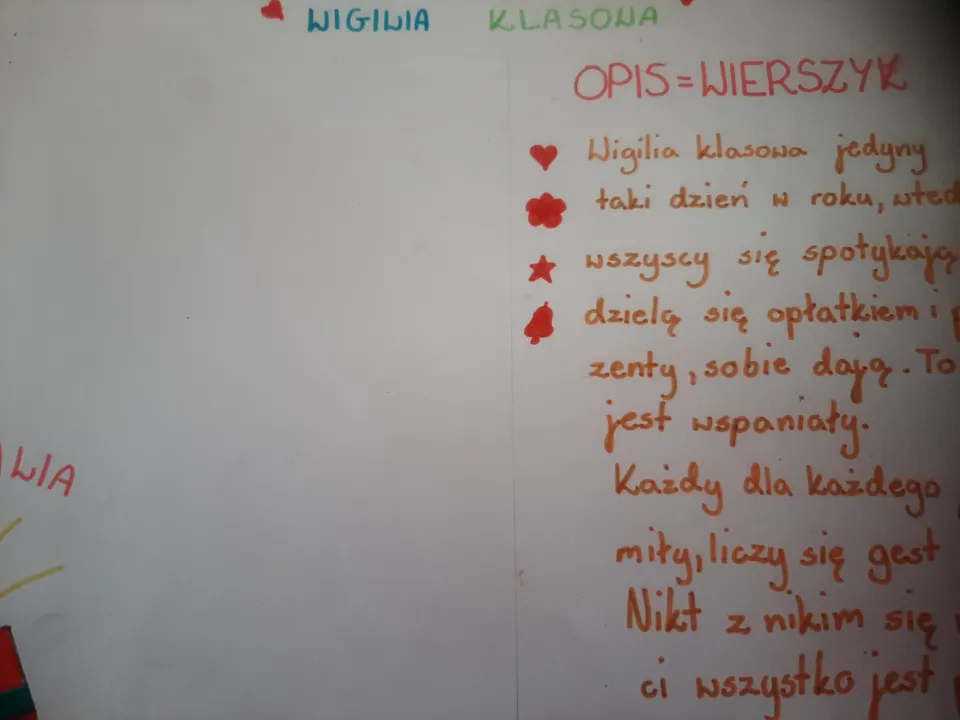 WIGILIA KLASOWA
OPIS = WIERSZYK
Wigilia klasowa jedyny
taki dzień w roku, wted
wszyscy się spotykają
dzielą się opłatkiem i p
zenty, sobie dają. To
jest wspaniały.
Każdy dla każdego
miły, liczy się gest
Nikt z nikim się
ci wszystko jest
LIA